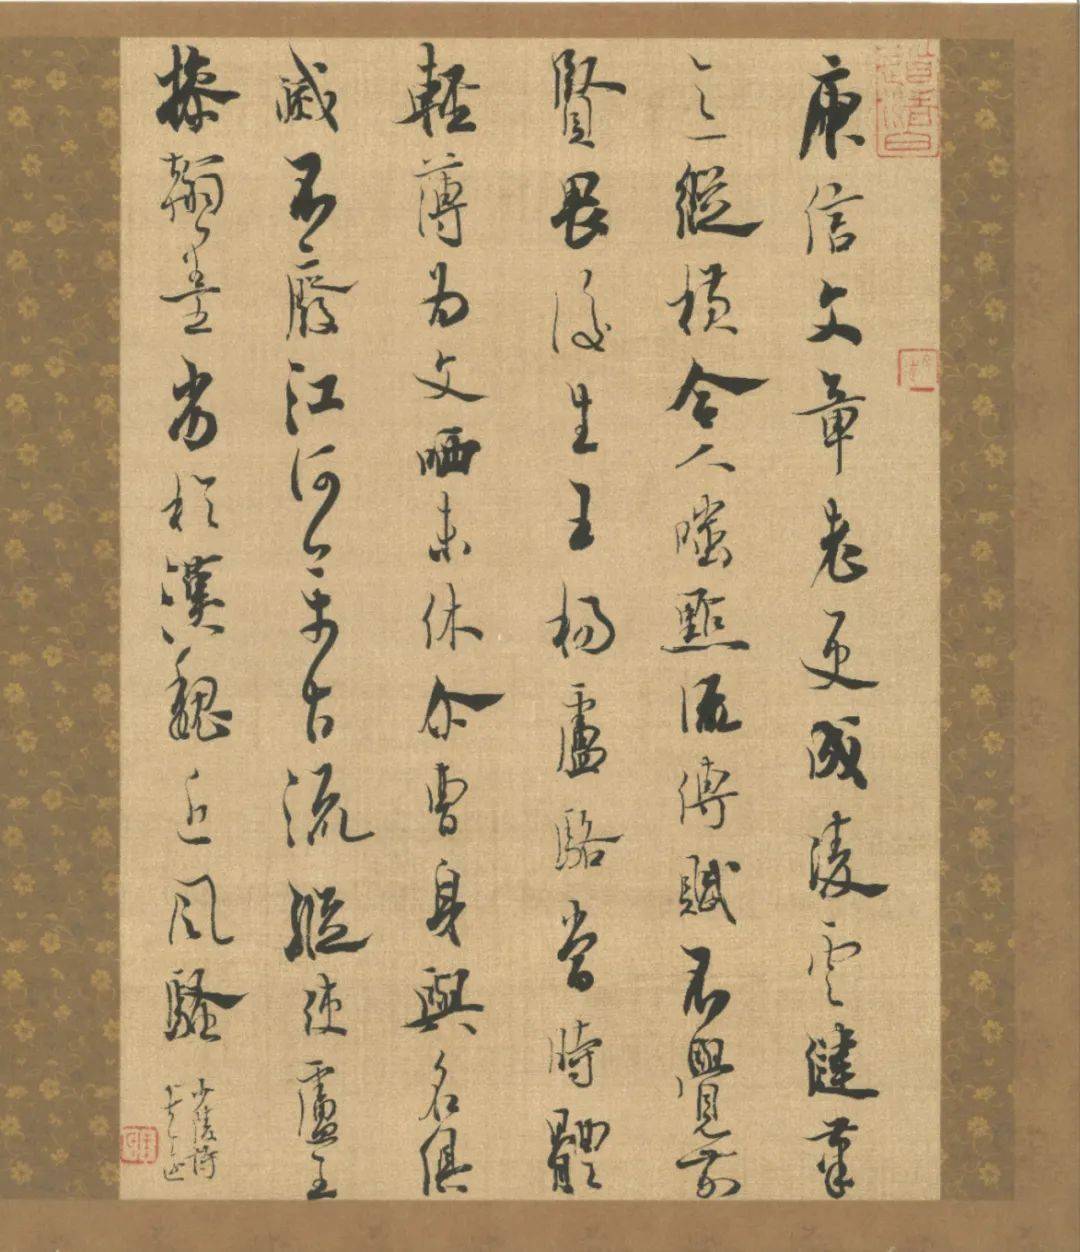 庾信文章老更成陵雲健筆
意縱橫今人嗤點流傳賦不覺前
賢畏後生王楊盧駱當時體
輕薄為文哂未休尒曹身與名俱
滅不廢江河萬古流縱使盧王
操翰墨劣於漢魏近風騷
少陵詩